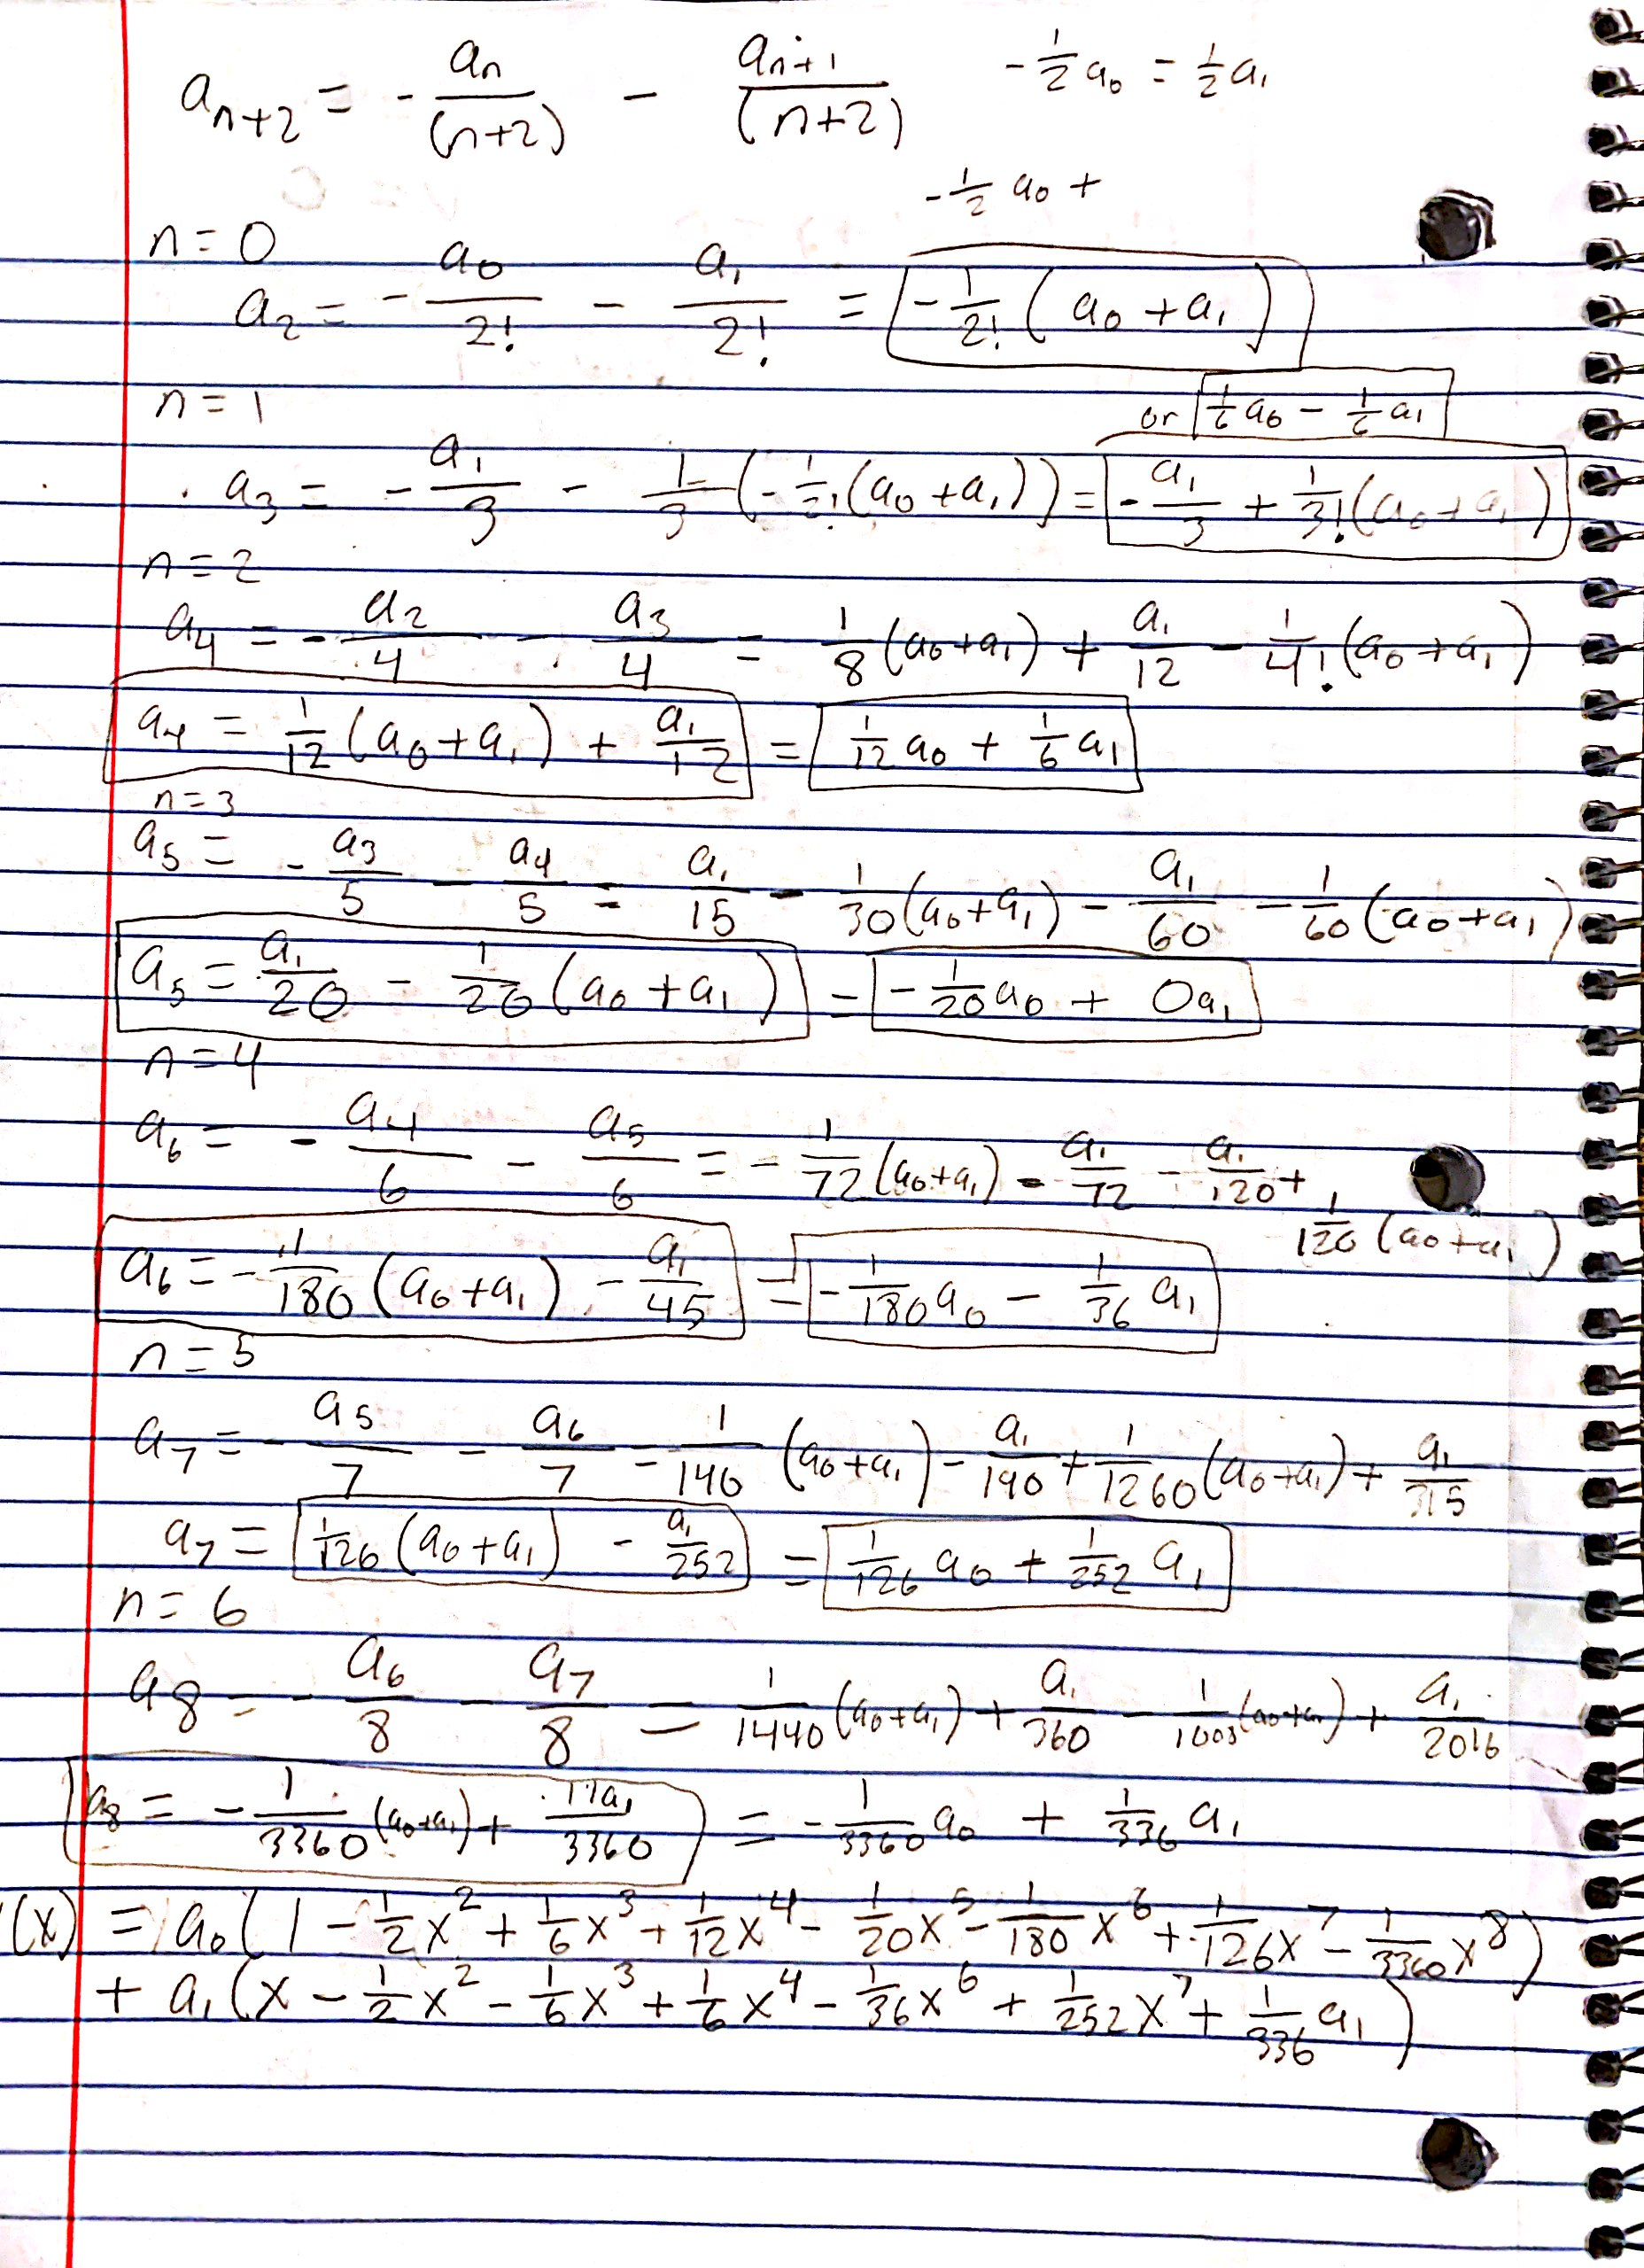 a_{n+2} = - a_n/(n+2) - a_{n+1}/(n+2)    -1/2 a_0 = 1/2 a_1
-1/2 a_0 +
n = 0
a_2 = - a_0/2! - a_1/2! = -1/2! (a_0 + a_1)
n = 1
or 1/6 a_0 - 1/6 a_1
a_3 = - a_1/3 - 1/3 (-1/2! (a_0 + a_1)) = - a_1/3 + 1/3! (a_0 + a_1)
n = 2
a_4 = - a_2/4 - a_3/4 = 1/8 (a_0 + a_1) + a_1/12 - 1/4! (a_0 + a_1)
a_4 = 1/12 (a_0 + a_1) + a_1/12 = 1/12 a_0 + 1/6 a_1
n = 3
a_5 = - a_3/5 - a_4/5 = a_1/15 - 1/30 (a_0 + a_1) - a_1/60 - 1/60 (a_0 + a_1)
a_5 = a_1/20 - 1/20 (a_0 + a_1) = -1/20 a_0 + 0a_1
n = 4
a_6 = - a_4/6 - a_5/6 = - 1/72 (a_0 + a_1) - a_1/72 - a_1/120 +
1/120 (a_0 + a_1)
a_6 = - 1/180 (a_0 + a_1) - a_1/45 = - 1/180 a_0 - 1/36 a_1
n = 5
a_7 = - a_5/7 - a_6/7 = 1/140 (a_0 + a_1) - a_1/140 + 1/1260 (a_0 + a_1) + a_1/315
a_7 = 1/126 (a_0 + a_1) - a_1/252 = 1/126 a_0 + 1/252 a_1
n = 6
a_8 = - a_6/8 - a_7/8 = 1/1440 (a_0 + a_1) + a_1/360 - 1/1008 (a_0 + a_1) + a_1/2016
a_8 = - 1/3360 (a_0 + a_1) + 11a_1/3360 = - 1/3360 a_0 + 1/336 a_1
(x) = a_0 (1 - 1/2 x^2 + 1/6 x^3 + 1/12 x^4 - 1/20 x^5 - 1/180 x^6 + 1/126 x^7 - 1/3360 x^8)
+ a_1 (x - 1/2 x^2 - 1/6 x^3 + 1/6 x^4 - 1/36 x^6 + 1/252 x^7 + 1/336 a_1)